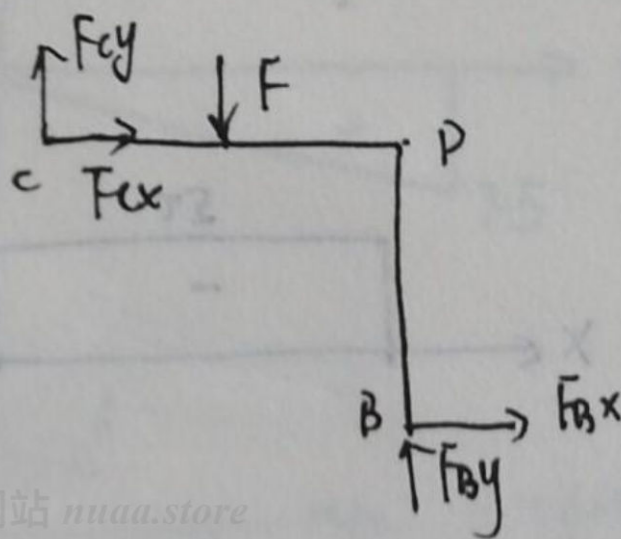 Fcy
F
P
C
Fcx
B
FBx
FBy
站 nuaa.store